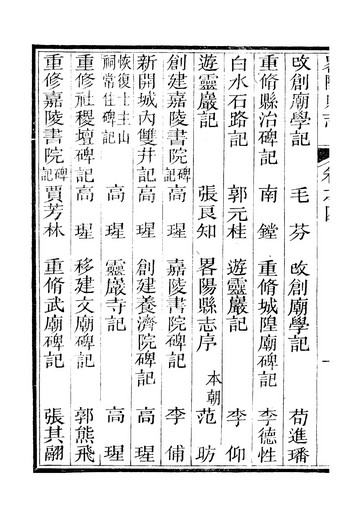 畧陽縣志 卷之四 一
改創廟學記 毛芬 改創廟學記 苟進璠
重脩縣治碑記 南鏜 重脩城隍廟碑記 李德性
白水石路記 郭元桂 遊靈巖記 李仰
遊靈巖記 張良知 畧陽縣志序 本朝 范昉
創建嘉陵書院碑記 高瑆 嘉陵書院碑記 李俌
新開城內雙井記 高瑆 創建養濟院碑記 高瑆
恢復主山祠常住碑記 高瑆 靈巖寺記 高瑆
重修社稷壇碑記 高瑆 移建文廟碑記 郭熊飛
重修嘉陵書院碑記 賈芳林 重脩武廟碑記 張其翮